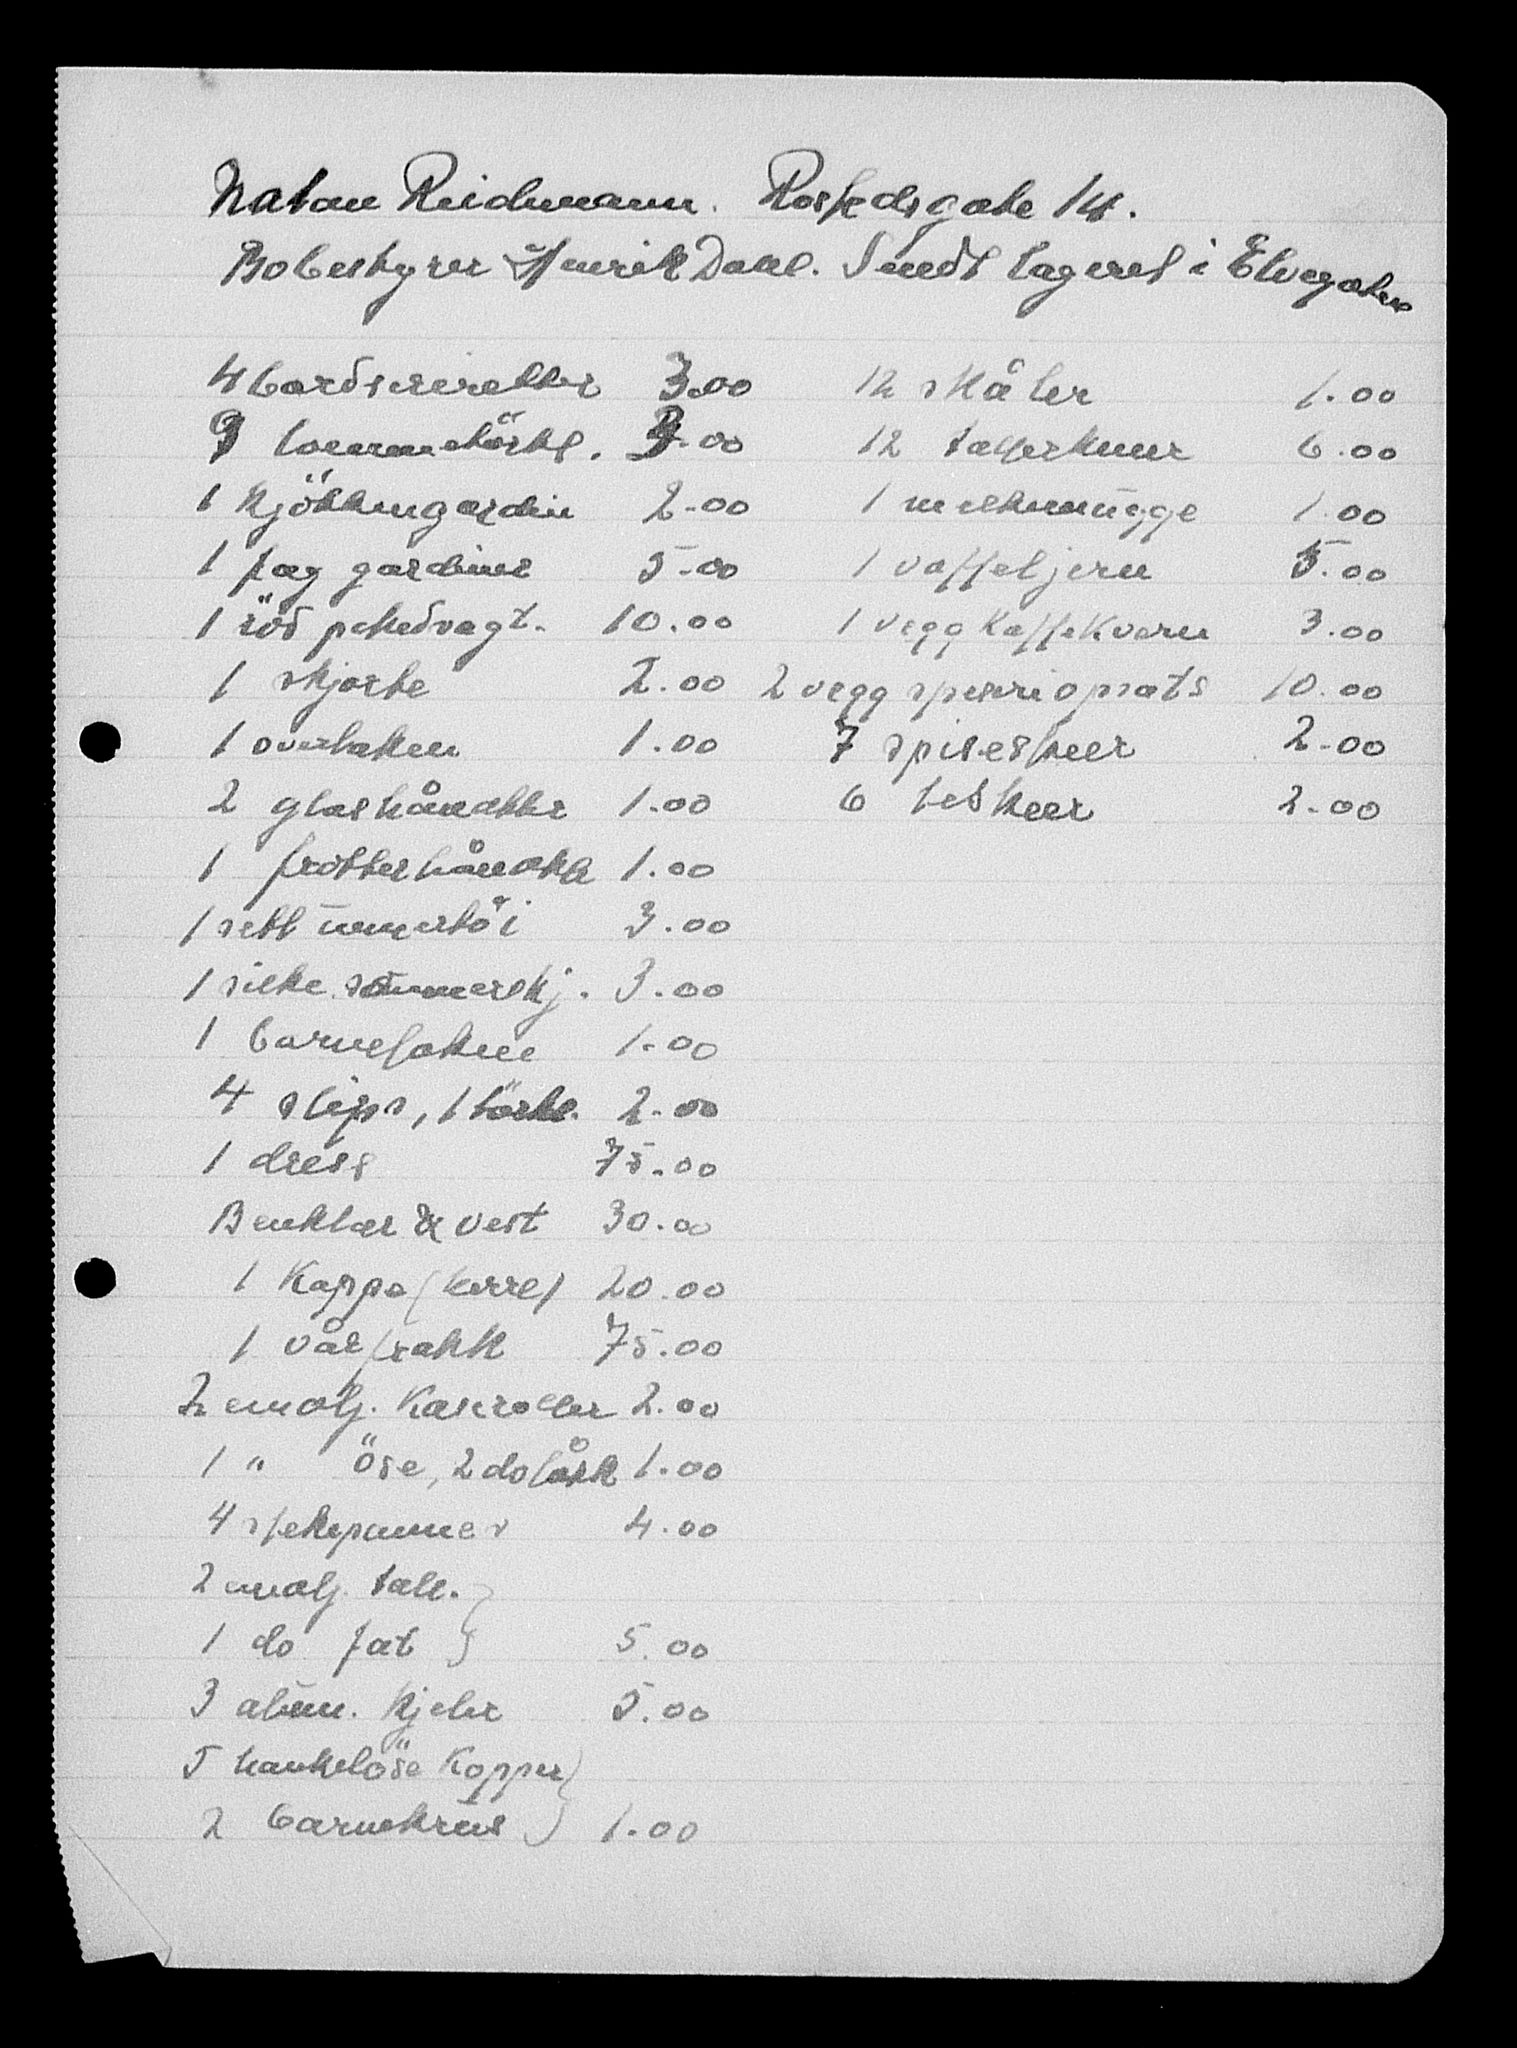 Natan Reichmann. Rostedsgate 14.
Bobestyrer Henrik Dahl. Sendt lageret i Elvegaten
4 bordservietter 3.00
9 lommetörkl. 3.00
1 kjökkengardin 2.00
1 fag gardiner 5.00
1 röd 10.00
1 skjorte 2.00
1 overlaken 1.00
2 glashåndklr 1.00
1 frotterhåndkl 1.00
1 sett undertöi 3.00
1 silke sommerskj. 3.00
1 barnelaken 1.00
4 slips, 1 törkl. 2.00
1 dress 75.00
Benklær & vest 30.00
1 Kappe (herre) 20.00
1 vårfrakk 75.00
2 emalj. Kasroller 2.00
1 " öse, 2 do 1.00
4 stekepanner 4.00
2 emalj. tall.
1 do fat 5.00
3 alum. kjeler 5.00
5 hankelöse Kopper
2 barnekrus 1.00
12 skåler 1.00
12 tallerkener 6.00
1 melkemugge 1.00
1 vaffeljern 5.00
1 vegg Kaffekvern 3.00
2 vegg speseriopsats 10.00
7 spiseskeer 2.00
6 teskeer 2.00